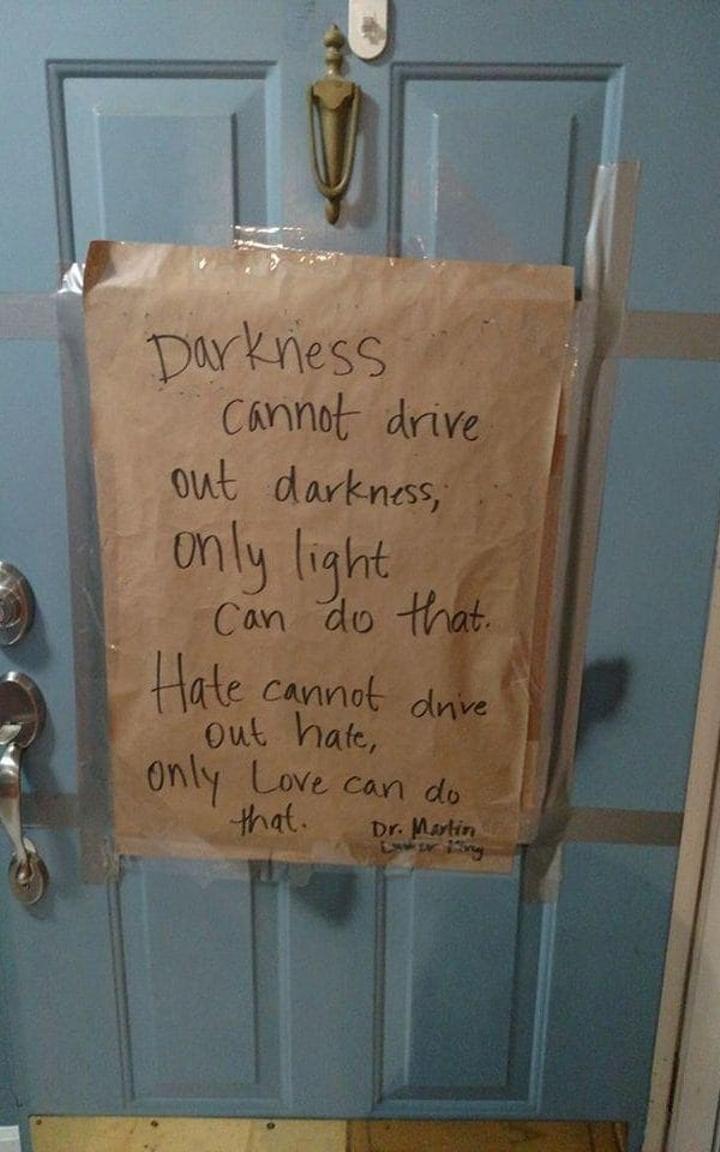 Darkness
cannot drive
out darkness,
only light
can do that.
Hate cannot drive
out hate,
only Love can do
that.
Dr. Martin
King